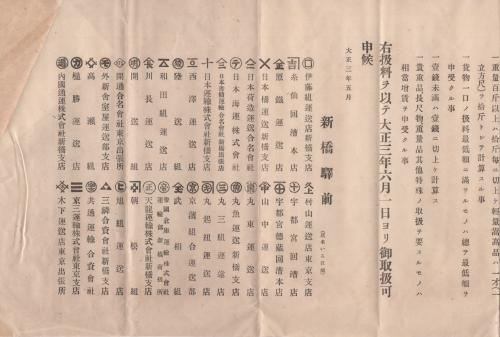 一重量百斤以上ハ拾斤每ニ切上ケ輕量嵩高品ハ一才(一
立方尺)ヲ拾斤トシテ計算スル事
一貨物一口ノ扱料最低額ニ滿タサルモノハ總テ最低額ヲ
申受クル事
一壹錢未滿ハ壹錢ニ切上ケ計算ス
一貴重品長尺物重量品其他特殊ノ取扱ヲ要スルモノハ
相當增賃ヲ申受クル事
右扱料ヲ以テ大正三年六月一日ヨリ御取扱可
申候
大正三年五月
新橋驛前
伊藤組運送店新橋支店
糸仙回漕本店
原鐵運送店
日本橋運送新橋支店
日本荷造運送合名會社
日本海運株式會社
日本運輸合名會社新橋出張店
日本運輸株式會社新橋支店
西澤運送店
陸運送店
和田組運送店
川長運送店
明田組運送店
開通合名會社東京出張所
外新舍室屋運送部支店
高瀨組
樋勝運送店
內國通運株式會社新橋支店
村山運送店東京支店
十宇都宮回漕店
宇都宮德藏回漕本店
山中運送店
丸東運送店
丸魚運送新橋支店
丸三組運送店
丸起組運送店
京濱組合運送店
武相組
帝國倉庫運輸株式會社
運輸部新橋荷扱所
天龍運輸株式會社新橋支店
朝松組
旭組運送店
三鱗合資會社新橋支店
共通運輸合資會社
東三運輸株式會社東京支店
木下運送店東京出張所